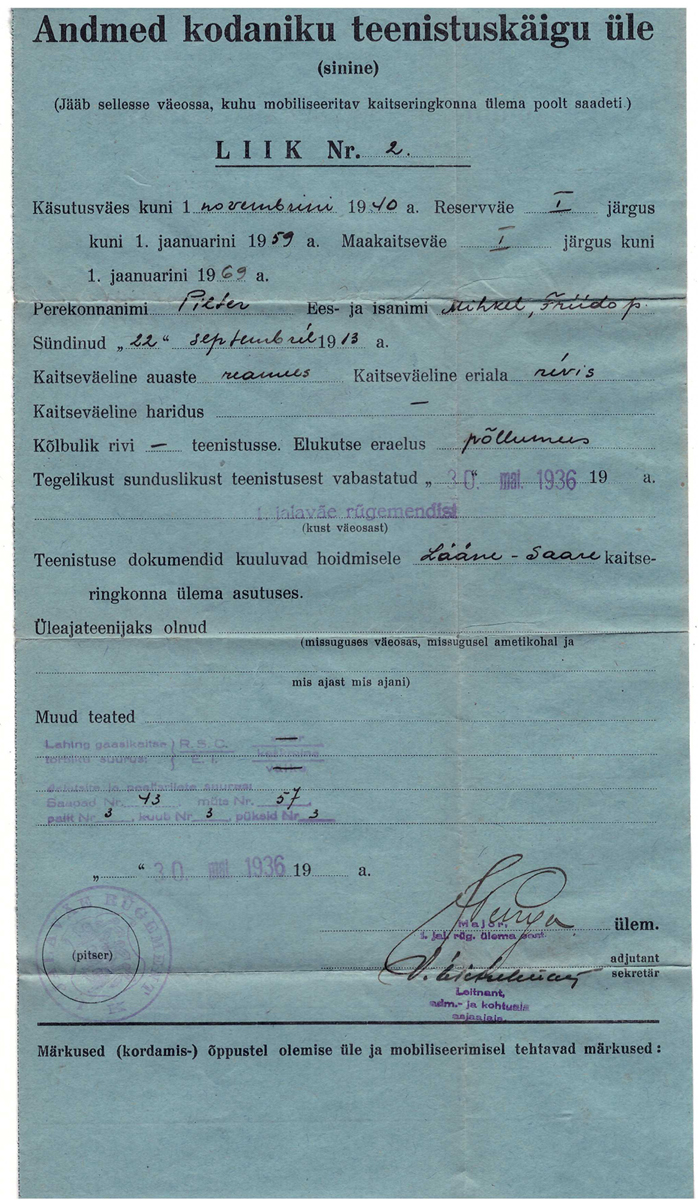 Andmed kodaniku teenistuskäigu üle
(sinine)
(Jääb sellesse väeossa, kuhu mobiliseeritav kaitseringkonna ülema poolt saadeti.)
LIIK Nr. 2.
Käsutusväes kuni 1 novembrini 1940 a. Reservväe I järgus
kuni 1. jaanuarini 1959 a. Maakaitseväe I järgus kuni
1. jaanuarini 1969 a.
Perekonnanimi Pilter Ees- ja isanimi Mihkel, Friido p.
Sündinud „22“ septembril 1913 a.
Kaitseväeline auaste reamees Kaitseväeline eriala rivis
Kaitseväeline haridus —
Kõlbulik rivi — teenistusse. Elukutse eraelus põllumees
Tegelikust sunduslikust teenistusest vabastatud „30.“ mai. 1936 19 a.
1. jalaväe rügemendist
(kust väeosast)
Teenistuse dokumendid kuuluvad hoidmisele Lääne-Saare kaitse-
ringkonna ülema asutuses.
Üleajateenijaks olnud
(missuguses väeosas, missugusel ametikohal ja
mis ajast mis ajani)
Muud teated
Lahing gaasikaitse R.S.C. —
suurus: —
Saapad Nr. 43 müts Nr. 57,
palit Nr 3, kuub Nr 3, püksid Nr. 3
„ “ 30. mai. 1936 19 a.
Major,
1. jal. rüg. ülema ülem.
(pitser)
adjutant
sekretär
Leitnant,
adm.- ja kohtuala
asjaajaja.
Märkused (kordamis-) õppustel olemise üle ja mobiliseerimisel tehtavad märkused: